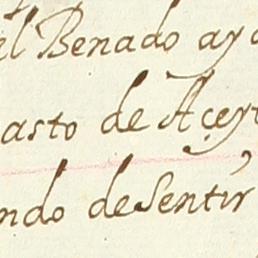 el Benado ayo
asto de Açeyt
ndo de Sentir